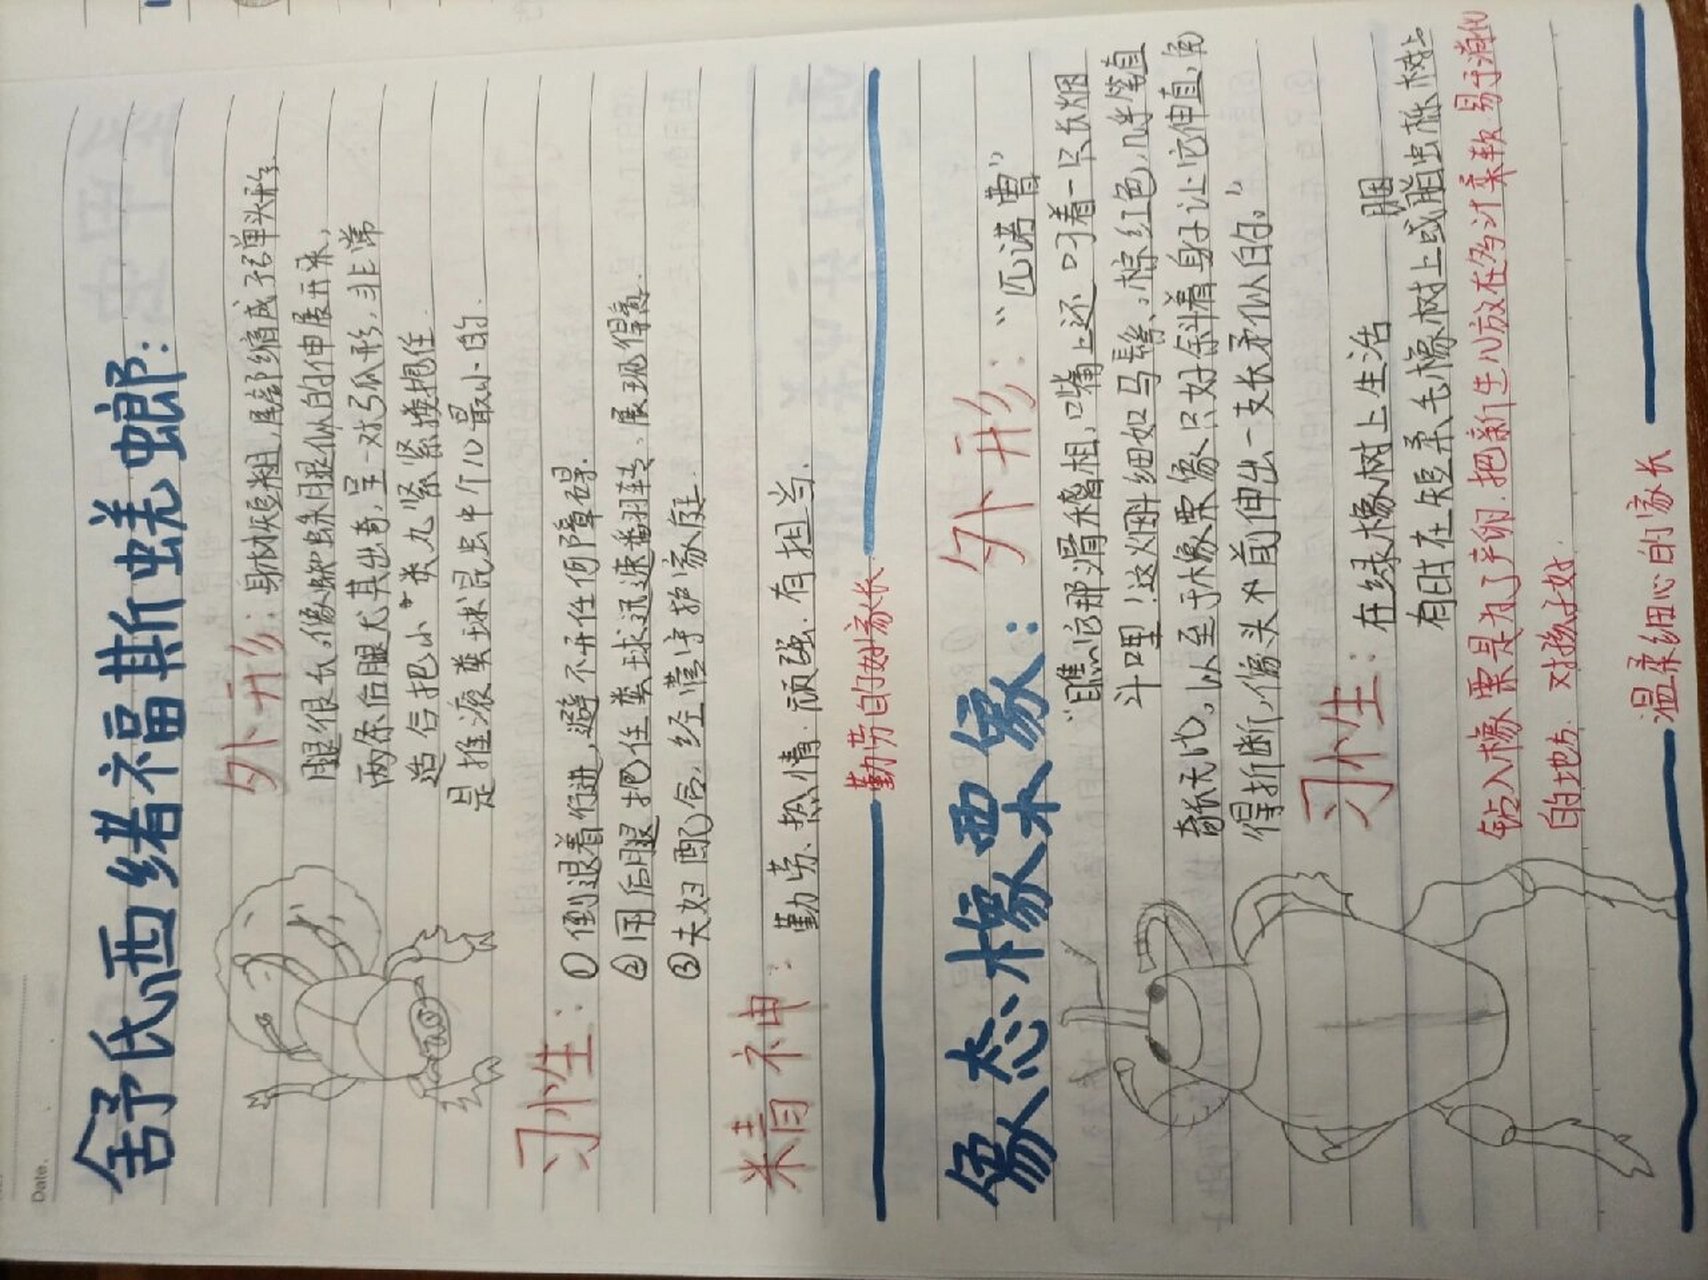 Date.
舒氏西绪福斯蜣螂:
外形: 身材短粗,尾部缩成子弹头形,
腿很长,像蜘蛛腿似的伸展开来,
两条后腿尤其出奇,呈一对弧形,非常
适合把小粪丸紧紧搂抱住
是推滚粪球昆虫中个儿最小的.
习性: ①倒退着行进,避不开任何障碍.
②用后腿把住粪球迅速翻转、展现得高.
③夫妇配合,经营守护家庭.
精神: 勤劳、热情、顽强、有担当.
勤劳的好家长
象态橡栗象:
外形: “匹诺曹”
“瞧它那滑稽相,嘴上还叼着一只长烟
斗哩!这烟斗细如马鬃,棕红色,几乎笔直
奇长无比。以至于橡栗象只好斜着身子让它伸直,免
得折断,像头前伸出一支长矛似的。”
习性: 在绿橡树上生活
有时在短柔毛橡树上或胭脂虫栎树上
胭
钻入橡栗是为了产卵.把新生儿放在多汁柔软易于消化
的地方. 对孩子好.
温柔细心的家长